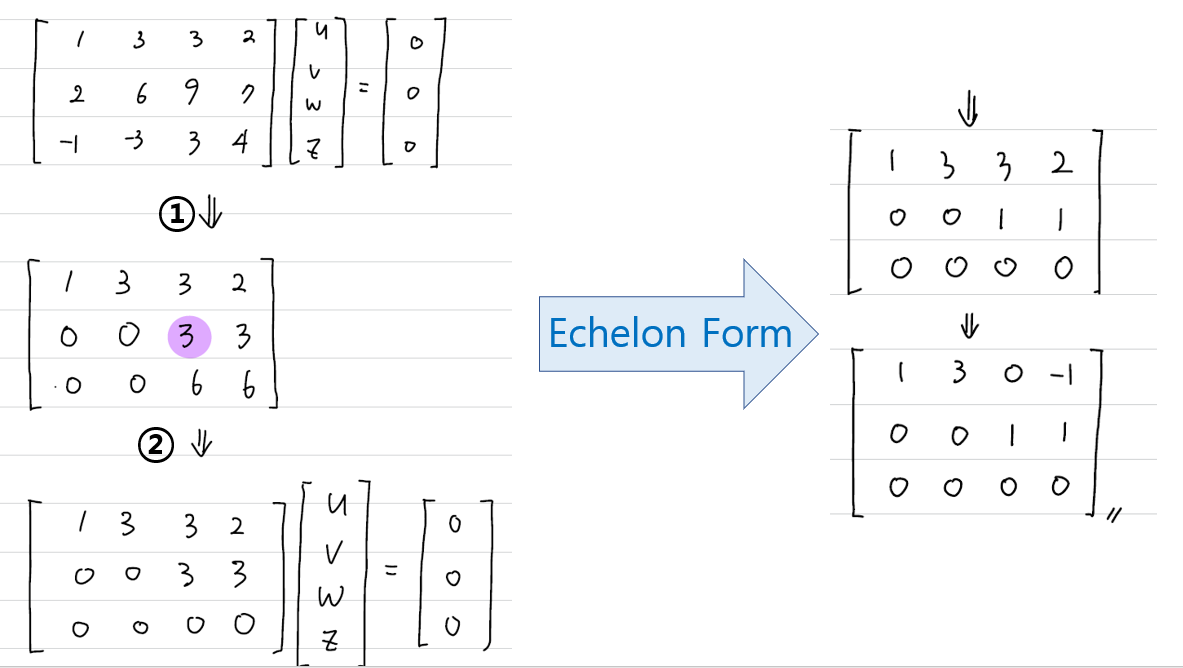 1 3 3 2 u 0
2 6 9 7 v = 0
-1 -3 3 4 w z 0
① ⇓
1 3 3 2
0 0 3 3
0 0 6 6
② ⇓
1 3 3 2 u 0
0 0 3 3 v w = 0
0 0 0 0 z 0
Echelon Form
⇓
1 3 3 2
0 0 1 1
0 0 0 0
⇓
1 3 0 -1
0 0 1 1
0 0 0 0 //